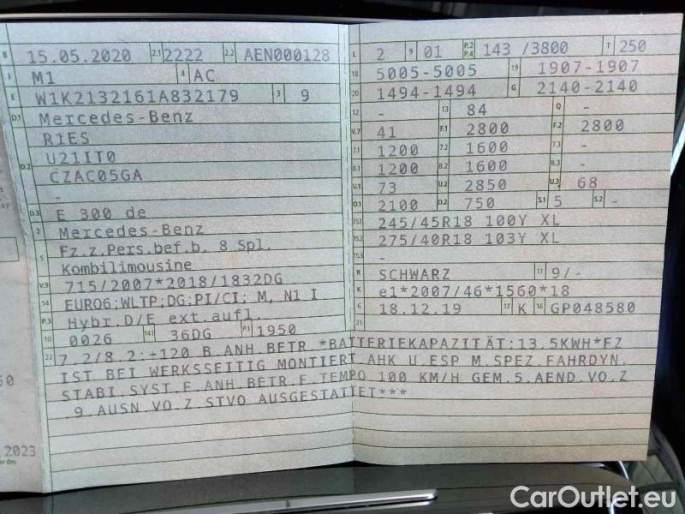 B 15.05.2020 2.1 2222 2.2 AEN000128
J M1 4 AC
E W1K2132161A832179 3 9
D.1 Mercedes-Benz
R1ES
D.2 U21IT0
CZAC05GA
-
D.3 E 300 de
2 Mercedes-Benz
5 Fz.z.Pers.bef.b. 8 Spl.
Kombilimousine
V.9 715/2007*2018/1832DG
14 EURO6;WLTP;DG;PI/CI; M, N1 I
P.3 Hybr.D/E ext.aufl.
10 0026 14.1 36DG P.1 1950
L 2 9 01 P.2 P.4 143 /3800 T 250
18 5005-5005 19 1907-1907
20 1494-1494 G 2140-2140
12 - 13 84 Q -
V.7 41 F.1 2800 F.2 2800
7.1 1200 7.2 1600 7.3 -
8.1 1200 8.2 1600 8.3 -
U.1 73 U.2 2850 U.3 68
O.1 2100 O.2 750 S.1 5 S.2 -
15.1 245/45R18 100Y XL
15.2 275/40R18 103Y XL
15.3 -
R SCHWARZ 11 9/-
K e1*2007/46*1560*18
6 18.12.19 17 K 16 GP048580
21
22 7.2/8.2:+120 B.ANH BETR *BATTERIEKAPAZITÄT:13.5KWH*FZ
IST BEI WERKSSEITIG MONTIERT AHK U ESP M.SPEZ.FAHRDYN.
STABI.SYST F.ANH.BETR.F.TEMPO 100 KM/H GEM.5.AEND.VO.Z
9.AUSN.VO.Z.STVO AUSGESTATTET***
.2023
CarOutlet.eu